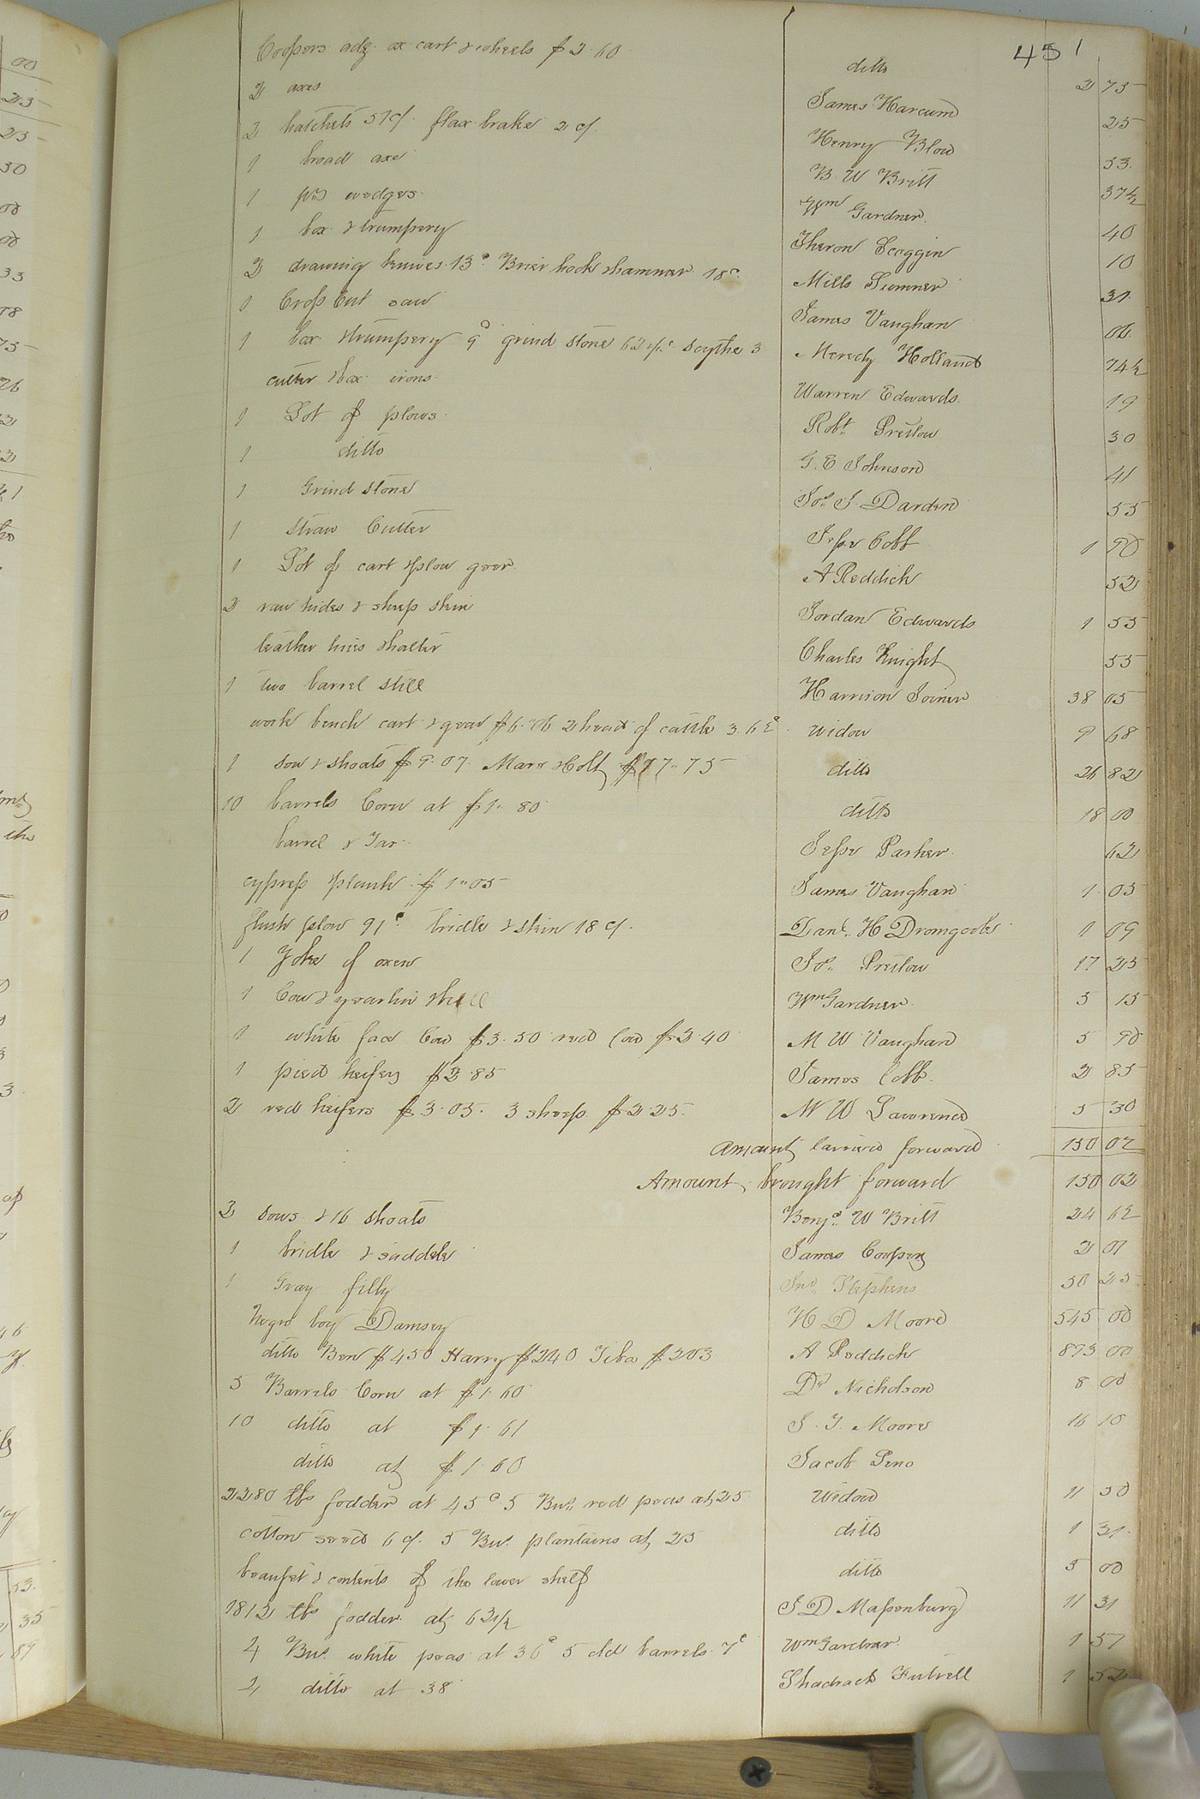 451
Coopers adz ax cart & wheels $2.60 ditto 2 75
2 axes James Harcum 25
2 hatchets 57c/ flax brake 2c/ Henry Blow 53
1 broad axe B W Britt 37½
1 pr wedges Wm Gardner 40
1 box & trumpery Theron Scoggin 10
2 drawing knives 13c Brier hook & hammer 18c Mills Sumner 31
1 Cross Cut saw James Vaughan 06
1 box & trumpery 9c grind stone 62½c scythe 3 Meredy Holland 74½
cutter & box irons Warren Edwards 19
1 Lot of plows Robt Pretlow 30
1 ditto G. E Johnson 41
1 Grind stone Jos S. Darden 55
1 Straw Cutter Jesse Cobb 1 90
1 Lot of cart & plow gear A Reddick 52
2 raw hides & sheep skin Jordan Edwards 1 55
leather Charles Knight 55
1 two barrel still Harrison Joiner 38 05
work bench cart & gear $6.06 2 head of cattle 3.62 Widow 9 68
1 sow & shoats $9.07 Mare & Colt $17-75 ditto 26 82
10 barrels Corn at $1.80 ditto 18 00
barrel & Tar Jesse Parker 62
cypress plank $1"05 James Vaughan 1 05
flush plow 91c bridle & skin 18c/ Danl. H Dromgoole 1 09
1 Yoke of oxen Jos. Pretlow 17 25
1 Cow & yearlin Wm Gardner 5 15
1 white face Cow $3.50 red Cow $2 40 M W Vaughan 5 90
1 pied heifer $2.85 James Cobb 2 85
2 red heifers $3.05. 3 sheep $2 25. M W Lawrence 5 30
Amount Carried forward 150 02
Amount brought forward 150 02
2 sows & 16 shoats Benja. W Britt 24 62
1 bridle & saddle James Cooper 2 01
1 Gray filly Jno Stephens 50 25
Negro boy Damsey H D Moore 545 00
ditto Ben $430 Harry $240 $203 A Reddick 873 00
5 Barrels Corn at $1.60 Dr Nicholson 8 00
10 ditto at $1.61 S. T. Moore 16 10
ditto at $1 60 Jacob
2280 lbs fodder at 45c 5 Bus. red peas at 25 Widow 11 50
cotton seed 6c/. 5 Bus. plantains at 25 ditto 1 31
beaufet & contents of the lower shelf ditto 5 00
1812 lbs fodder at 62½ J D Massenburg 11 31
4 Bus. white peas at 36c 5 old barrels 7c Wm Gardner 1 51
4 ditto at 38 Shadrack Futrell 1 52